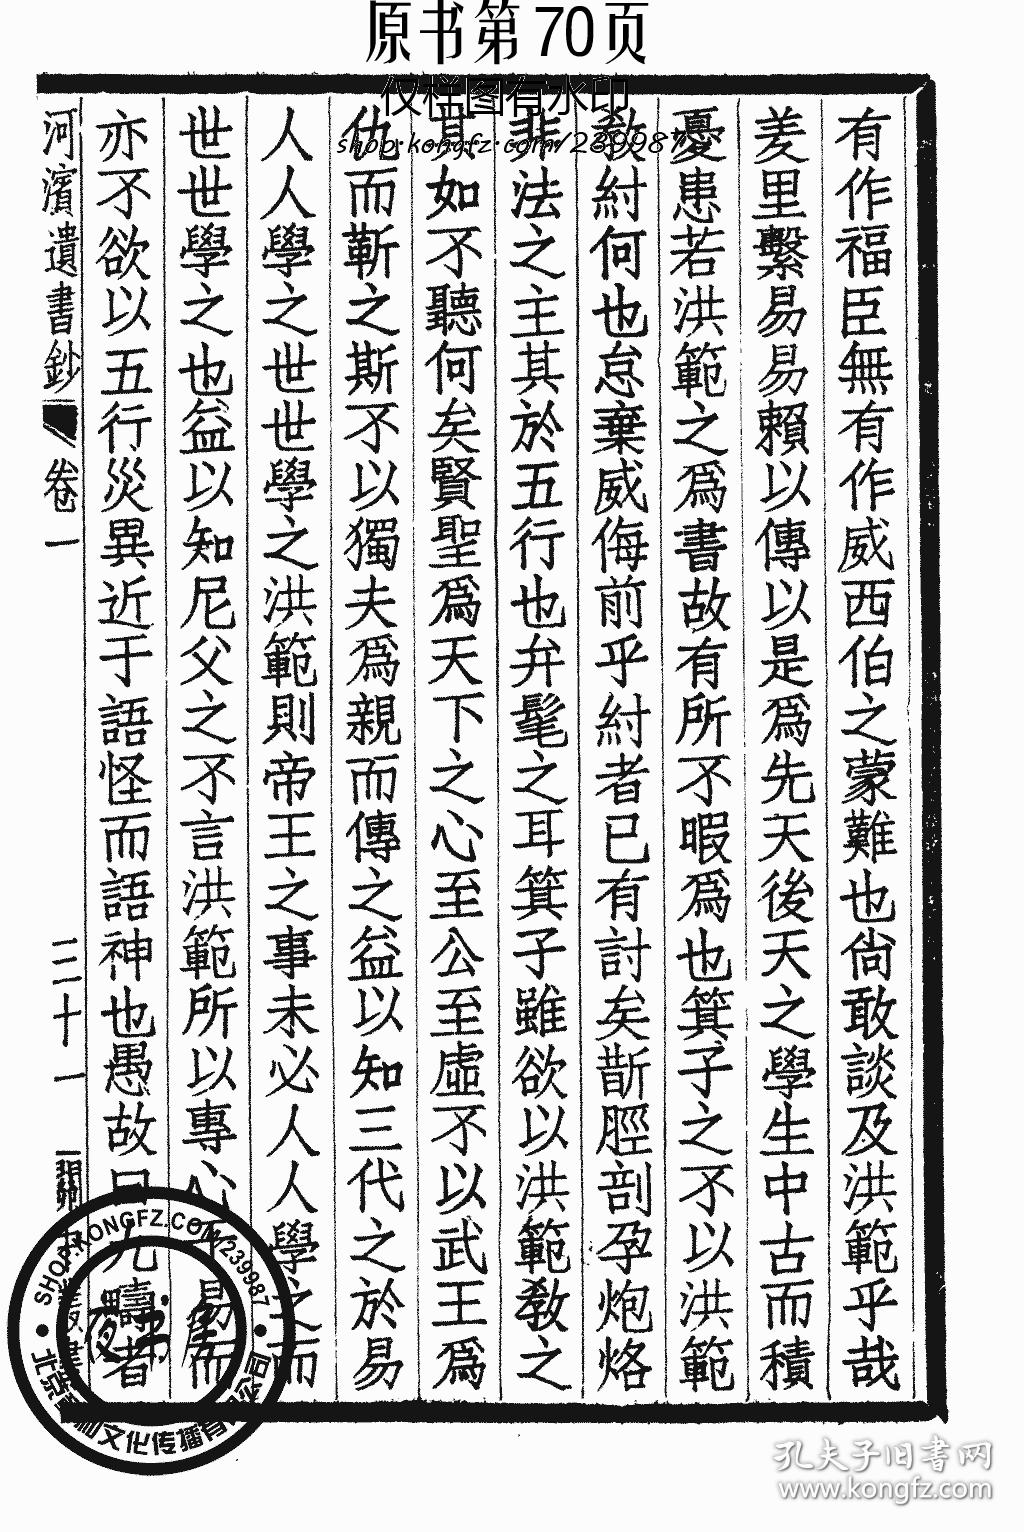 原书第70页
仅样图有水印
shop.kongfz.com/239987
有作福臣無有作威西伯之蒙難也尙敢談及洪範乎哉
羑里繫易易賴以傳以是爲先天後天之學生中古而積
憂患若洪範之爲書故有所不暇爲也箕子之不以洪範
敎紂何也怠棄威侮前乎紂者已有討矣斮脛剖孕炮烙
非法之主其於五行也弁髦之耳箕子雖欲以洪範敎之
其如不聽何矣賢聖爲天下之心至公至虛不以武王爲
仇而靳之斯不以獨夫爲親而傳之益以知三代之於易
人人學之世世學之洪範則帝王之事未必人人學之而
世世學之也益以知尼父之不言洪範所以專心於易而
亦不欲以五行災異近于語怪而語神也愚故曰九疇者
河濱遺書鈔
卷一
三十一
SHOP.KONGFZ.COM/239987
文化传播有限公司
孔夫子旧书网
www.kongfz.com